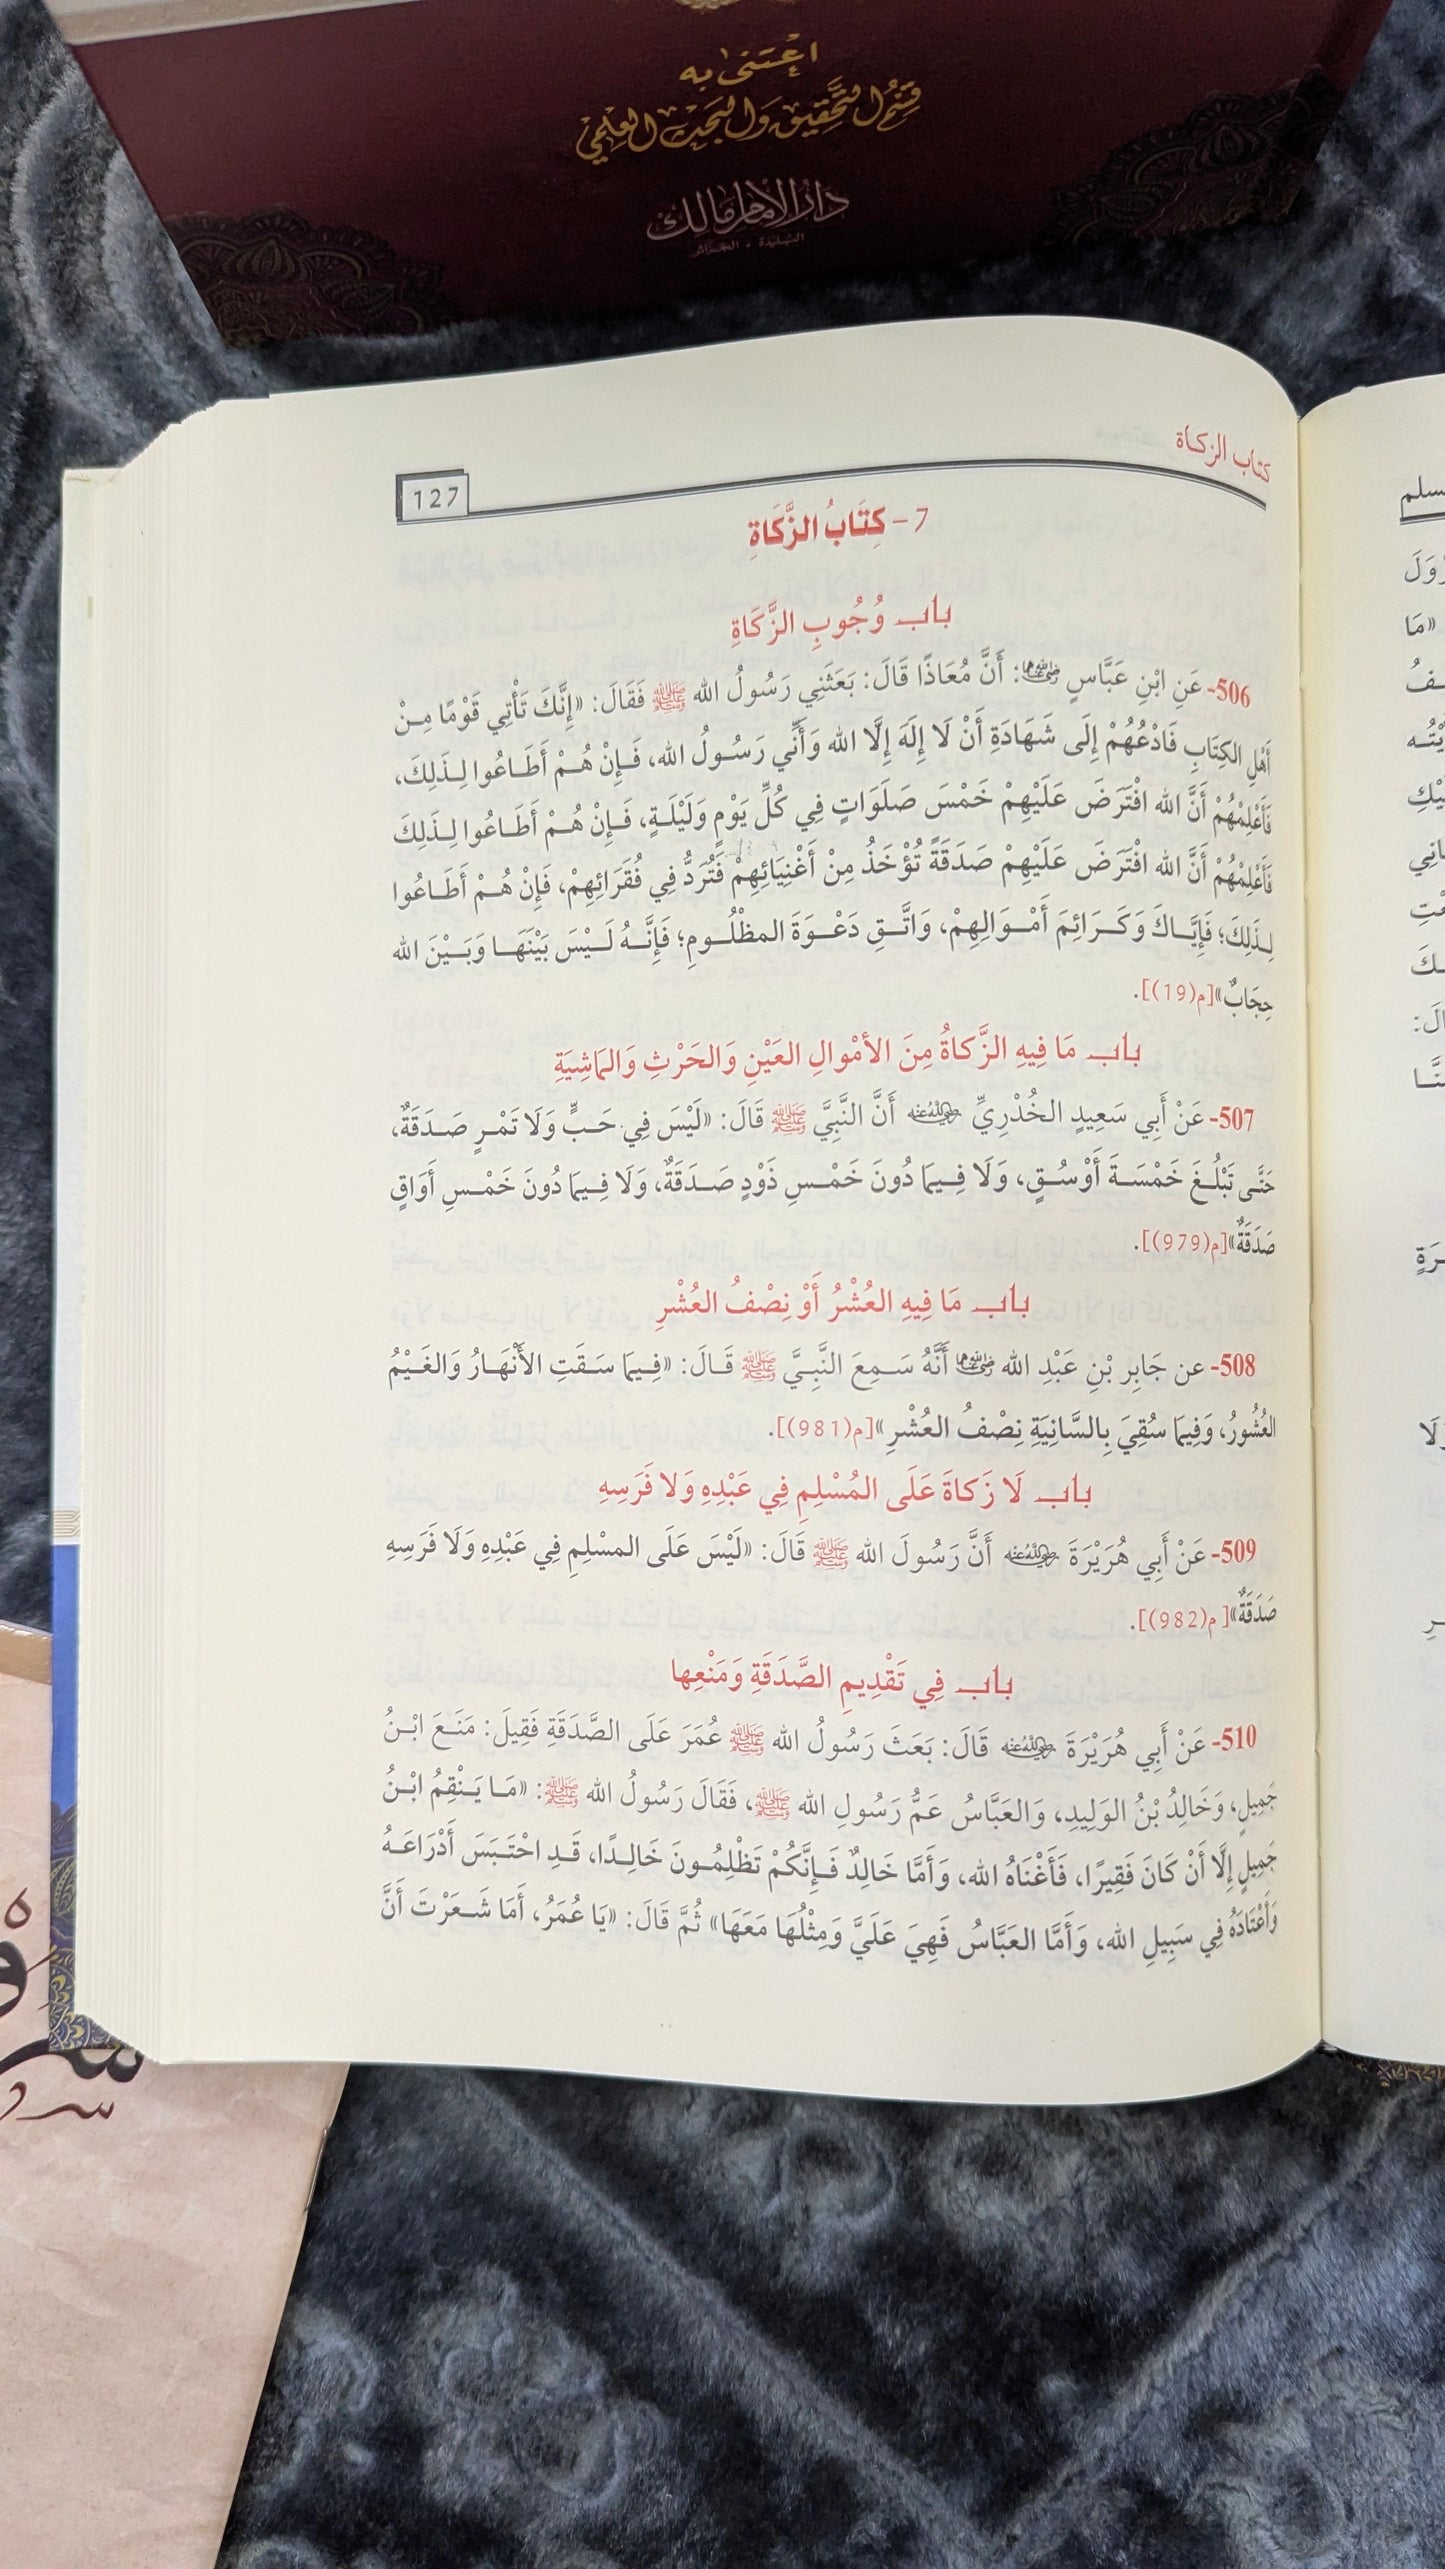 اعْتَنَى بِهِ
قِسْمُ التَّحْقِيقِ وَالبَحْثِ العِلْمِي
دَارُ الإِمَام مَالِك
البليدة - الجزائر
كتاب الزكاة
127
7 - كِتَابُ الزَّكَاةِ
باب وُجُوبِ الزَّكَاةِ
506- عَنِ ابْنِ عَبَّاسٍ رضي الله عنهما: أَنَّ مُعَاذًا قَالَ: بَعَثَنِي رَسُولُ الله ﷺ فَقَالَ: «إِنَّكَ تَأْتِي قَوْمًا مِنْ
أَهْلِ الكِتَابِ فَادْعُهُمْ إِلَى شَهَادَةِ أَنْ لَا إِلَهَ إِلَّا الله وَأَنِّي رَسُولُ الله، فَإِنْ هُمْ أَطَاعُوا لِذَلِكَ،
فَأَعْلِمْهُمْ أَنَّ الله افْتَرَضَ عَلَيْهِمْ خَمْسَ صَلَوَاتٍ فِي كُلِّ يَوْمٍ وَلَيْلَةٍ، فَإِنْ هُمْ أَطَاعُوا لِذَلِكَ
فَأَعْلِمْهُمْ أَنَّ الله افْتَرَضَ عَلَيْهِمْ صَدَقَةً تُؤْخَذُ مِنْ أَغْنِيَائِهِمْ فَتُرَدُّ فِي فُقَرَائِهِمْ، فَإِنْ هُمْ أَطَاعُوا
لِذَلِكَ؛ فَإِيَّاكَ وَكَرَائِمَ أَمْوَالِهِمْ، وَاتَّقِ دَعْوَةَ المظْلُومِ؛ فَإِنَّهُ لَيْسَ بَيْنَهَا وَبَيْنَ الله
حِجَابٌ»[م(19)].
باب مَا فِيهِ الزَّكاةُ مِنَ الأمْوالِ العَيْنِ وَالحَرْثِ وَالمَاشِيَةِ
507- عَنْ أَبِي سَعِيدٍ الخُدْرِيِّ رضي الله عنه أَنَّ النَّبِيَّ ﷺ قَالَ: «لَيْسَ فِي حَبٍّ وَلَا تَمْرٍ صَدَقَةٌ،
حَتَّى تَبْلُغَ خَمْسَةَ أَوْسُقٍ، وَلَا فِيمَا دُونَ خَمْسِ ذَوْدٍ صَدَقَةٌ، وَلَا فِيمَا دُونَ خَمْسِ أَوَاقٍ
صَدَقَةٌ»[م(979)].
باب مَا فِيهِ العُشْرُ أَوْ نِصْفُ العُشْرِ
508- عن جَابِر بْنِ عَبْدِ الله رضي الله عنهما أَنَّهُ سَمِعَ النَّبِيَّ ﷺ قَالَ: «فِيمَا سَقَتِ الأَنْهَارُ وَالغَيْمُ
العُشُورُ، وَفِيمَا سُقِيَ بِالسَّانِيَةِ نِصْفُ العُشْرِ»[م(981)].
باب لَا زَكاةَ عَلَى المُسْلِمِ فِي عَبْدِهِ وَلا فَرَسِهِ
509- عَنْ أَبِي هُرَيْرَةَ رضي الله عنه أَنَّ رَسُولَ الله ﷺ قَالَ: «لَيْسَ عَلَى المسْلِمِ فِي عَبْدِهِ وَلَا فَرَسِهِ
صَدَقَةٌ»[م(982)].
باب فِي تَقْدِيمِ الصَّدَقَةِ وَمَنْعِها
510- عَنْ أَبِي هُرَيْرَةَ رضي الله عنه قَالَ: بَعَثَ رَسُولُ الله ﷺ عُمَرَ عَلَى الصَّدَقَةِ فَقِيلَ: مَنَعَ ابْنُ
جَمِيلٍ، وَخَالِدُ بْنُ الوَلِيدِ، وَالعَبَّاسُ عَمُّ رَسُولِ الله ﷺ، فَقَالَ رَسُولُ الله ﷺ: «مَا يَنْقِمُ ابْنُ
جَمِيلٍ إِلَّا أَنْ كَانَ فَقِيرًا، فَأَغْنَاهُ الله، وَأَمَّا خَالِدٌ فَإِنَّكُمْ تَظْلِمُونَ خَالِدًا، قَدِ احْتَبَسَ أَدْرَاعَهُ
وَأَعْتَادَهُ فِي سَبِيلِ الله، وَأَمَّا العَبَّاسُ فَهِيَ عَلَيَّ وَمِثْلُهَا مَعَهَا» ثُمَّ قَالَ: «يَا عُمَرُ، أَمَا شَعَرْتَ أَنَّ